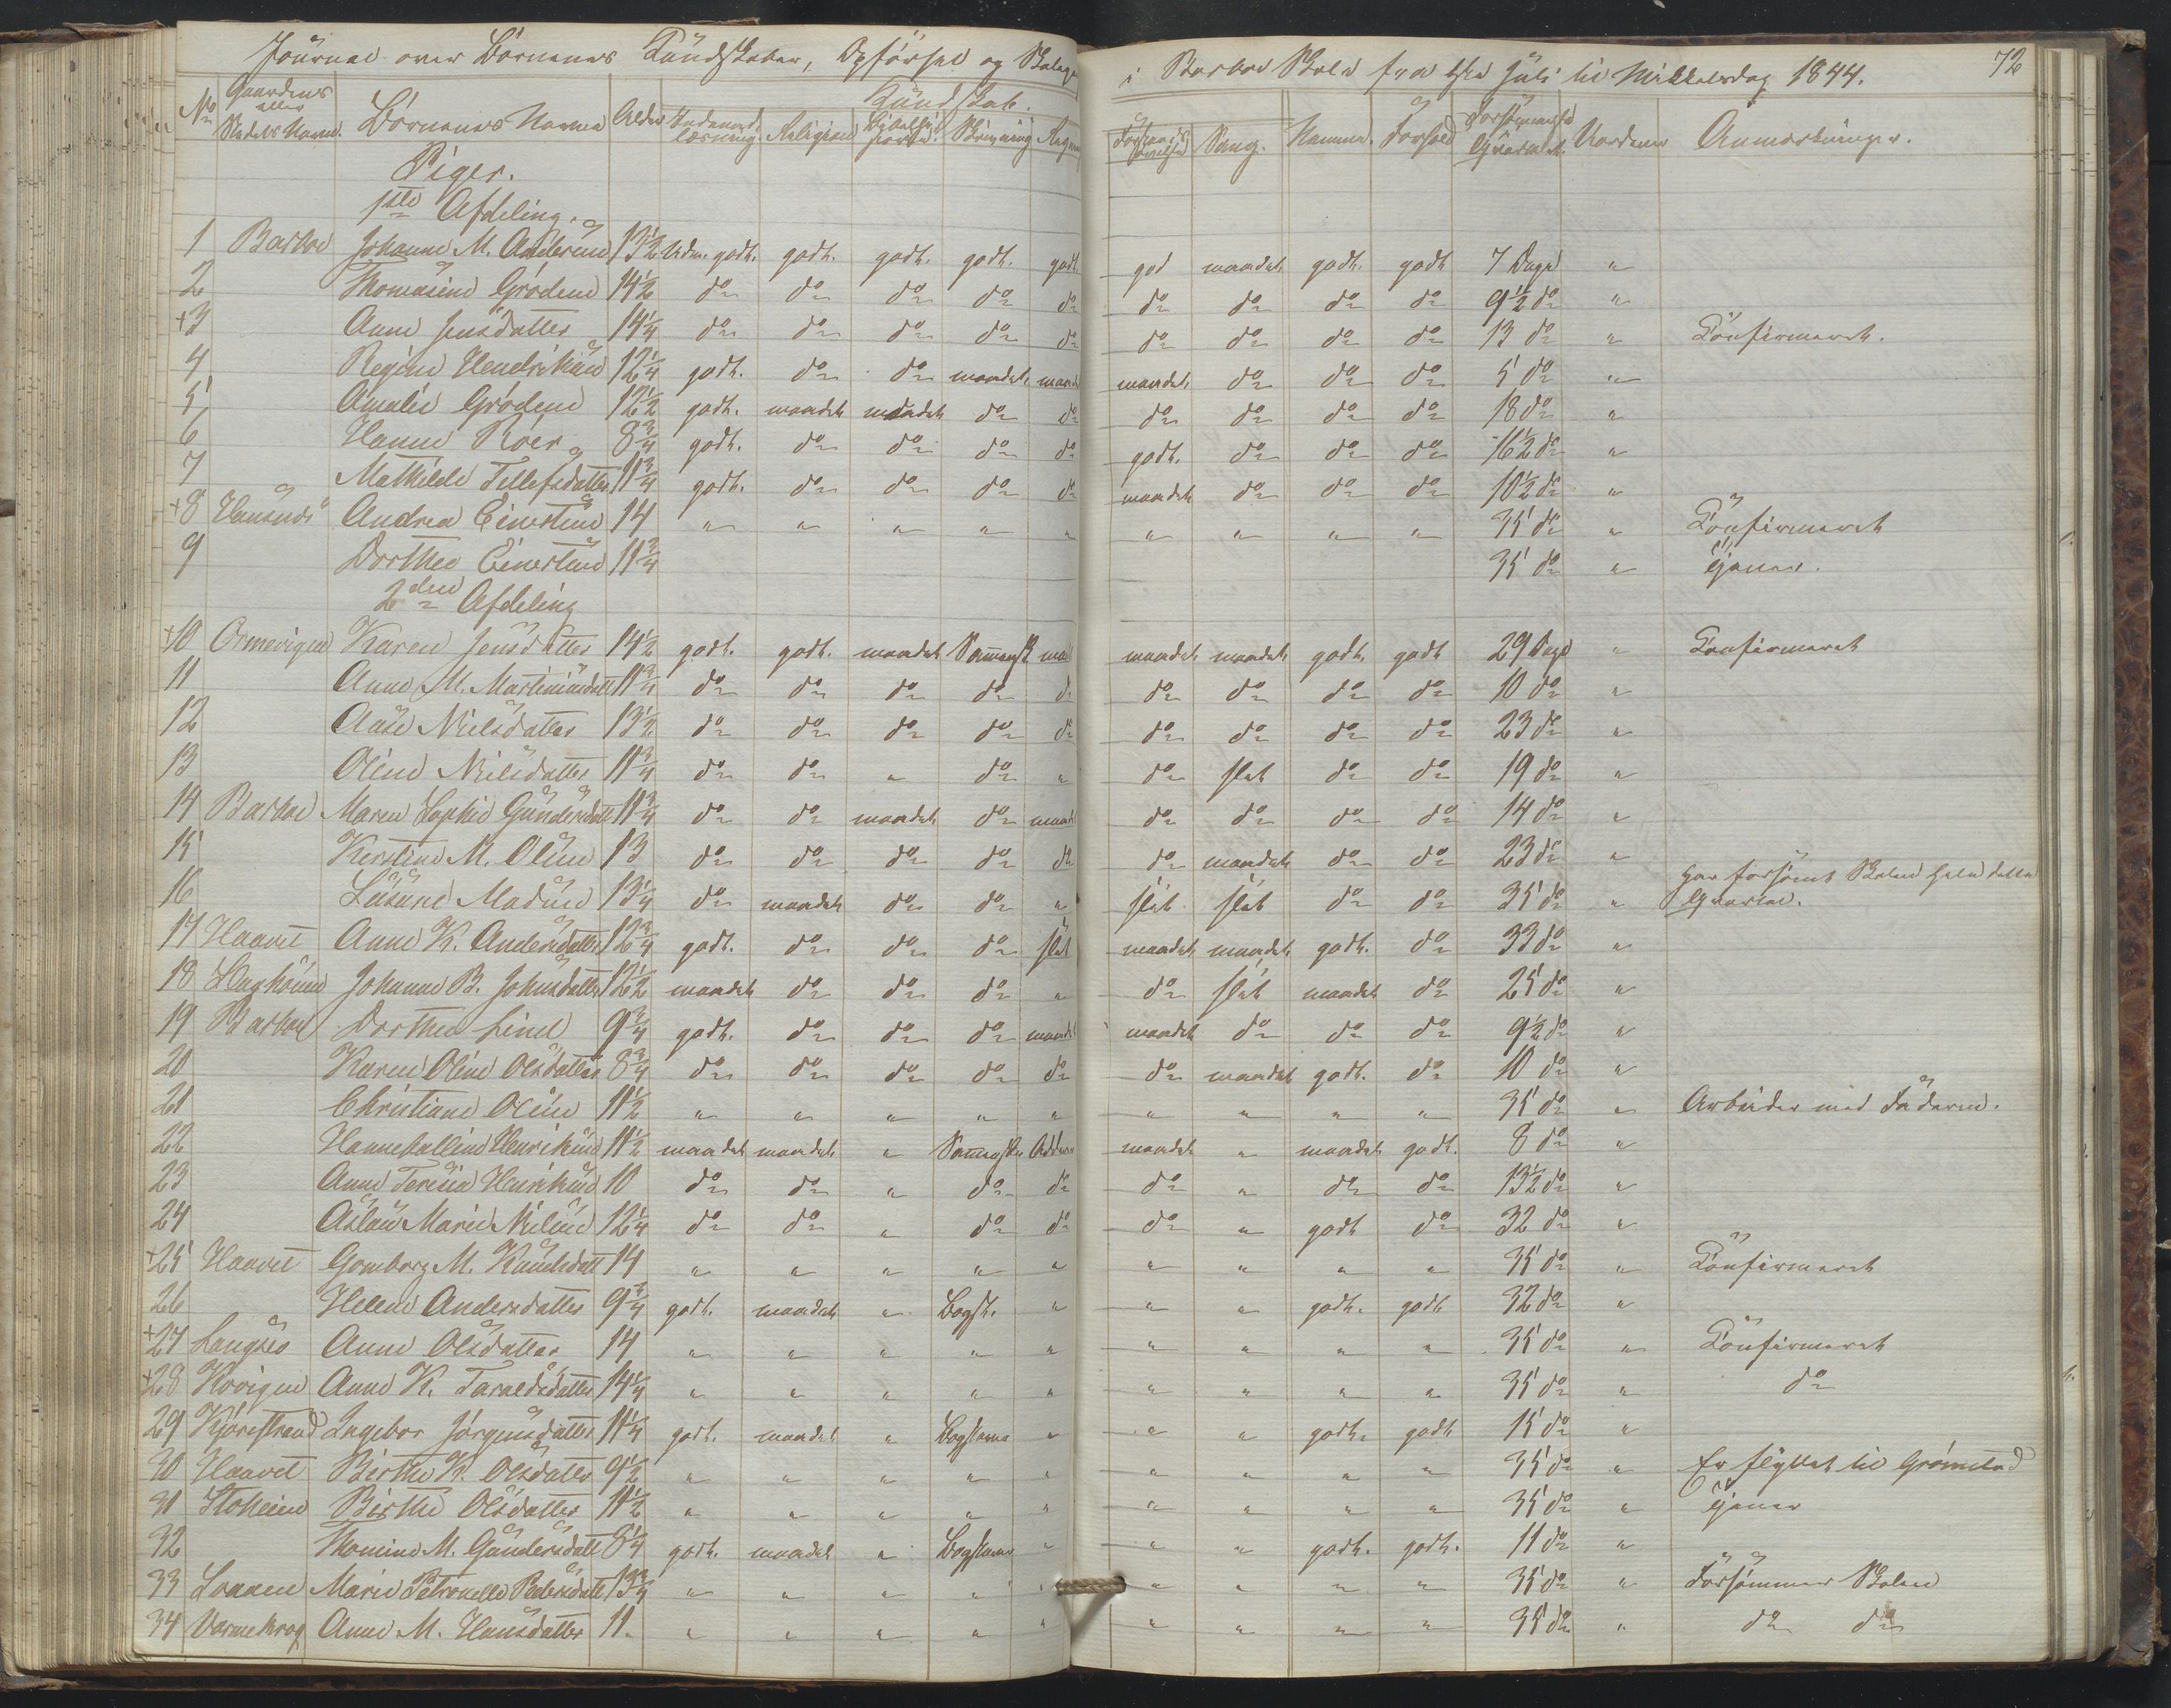 Journal over Börnenes Kundskaber, Opförsel og Skolegang i Barboe Skole fra 1ste Juli til Mikkelsdag 1844. 72
No Gaardens eller Stedets Navn. Börnenes Navne Alder Kundskab. Indenadlæsning Religion Bibelhistorie Skrivning Regning Forstandsøvelse Sang. Nemme. Forhold Forsömmelse i Qvartalet Anmærkninger.
Piger.
1ste Afdeling.
1 Barboe Johanne M. Andersen 13½ Udm. godt. godt. godt. godt. godt god maadel. godt. godt 7 Dage "
2 Thomasine Grödem 14½ do do do do do do do do do 9½ do "
+3 Anne Jensdatter 14¼ do do do do do do do do do 13 do " Confirmeret.
4 Regine Hendriksen 12¼ godt. do do maadel. maadel maadel. do do do 5 do "
5 Amalie Grödem 12½ godt. maadel. maadel. do do do do do do 18 do "
6 Hanne Roer 8¾ godt. do do do do godt. do do do 16½ do "
7 Mathilde Tellefsdatter 11¾ godt. do do do do maadel. do do do 10½ do "
+8 Andrea Einersen 14 " " " " " " " " " 35 do " Confirmeret
9 Dorthea Einersen 11¾ 35 do " tjener.
2den Afdeling
+10 Ormevigen Karen Jensdatter 14½ godt. godt. maadel. Sammensk maadel maadel. maadel. godt. godt 29 Dage " Confirmeret
11 Anne M. 11¾ do do do do do do do do do 10 do "
12 Aase Nielsdatter 13½ do do do do do do do do do 23 do "
13 Oline Nielsdatter 11¾ do do " do " do slet do do 19 do "
14 Barboe Maren Sophie Gundersdatt 11¾ do do maadel. do maadel do do do do 14 do "
15 Kerstine M. Olsen 13 do do do do do do maadel. do do 23 do "
16 Madsen 13¼ do maadel. do do " slet slet do do 35 do " Har forsömt Skolen hele dette
Qvartal.
17 Haavet Anne K. Andersdatter 12¾ godt. do do do slet maadel. maadel. godt. do 33 do "
18 Johanne B. Johnsdatter 12½ maadel. do do do " do slet maadel. do 25 do "
19 Barboe Dorthea Lind 9¾ godt. do do do maadel maadel. do do do 9½ do "
20 Karen Oline Olsdatter 8¾ do do do do do do maadel. godt. do 10 do "
21 Christiane Olsen 11½ " " " " " " " " " 35 do " Arbeider med Faderen.
22 Henriksen 11½ maadel. maadel. " Sammensk. Addere maadel. " maadel. godt. 8 do "
23 Anne Henriksen 10 do do " do do do " do do 13½ do "
24 Aslau Marie Nielsen 12¼ do do " do do do " godt do 32 do "
+25 Haavet Gomborg M. Knudsdatt 14 " " " " " " " " " 35 do " Confirmeret
26 Helene Andersdatter 9¾ godt. maadel. " Bogst. " " " godt. godt 32 do "
+27 Langsæ Anne Olsdatter 14 " " " " " " " " " 35 do " Confirmeret
+28 Anne K. Taraldsdatter 14¼ " " " " " " " " " 35 do " do
29 Ingebor Jörgensdatter 11¼ godt. maadel. " Bogstaver " " " godt. godt 15 do "
30 Haavet Birthe K. Olsdatter 9½ " " " " " " " " " 35 do " Er flyttet til Grömstad
31 Stoheien Birthe Olsdatter 11½ " " " " " " " " " 35 do " tjener
32 Thomine M. Gundersdatt 8¼ godt. maadel. " Bogstaver " " " godt. godt. 11 do "
33 Marie Petronelle Pedersdatt 13¾ " " " " " " " " " 35 do " Forsömmer Skolen
34 Varmekrog Anne M. Hansdatter 11. " " " " " " " " " 35 do " do do